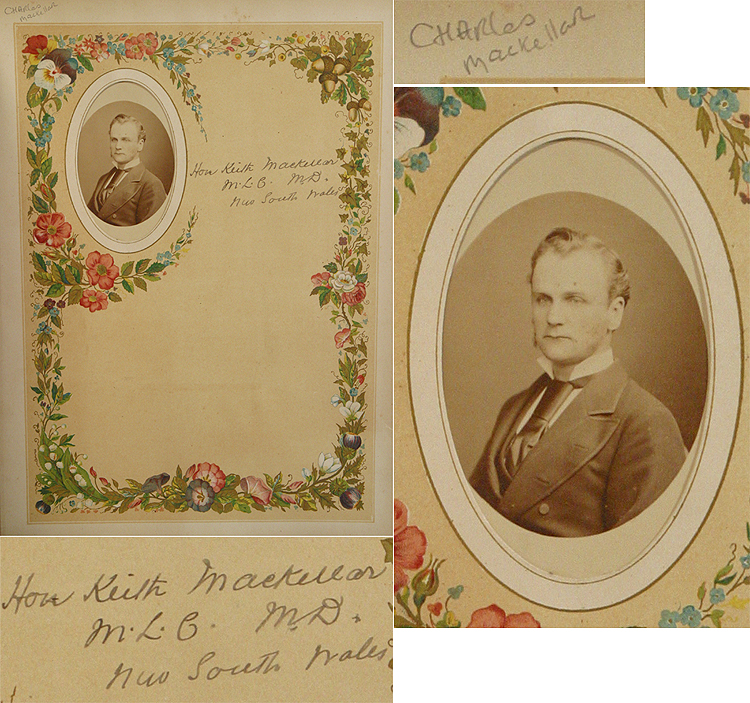 CHARles
Mackellar
Hon Keith Mackellar
M.L.C. M.D.
New South Wales
CHARles
Mackellar
Hon Keith Mackellar
M.L.C. M.D.
New South Wales